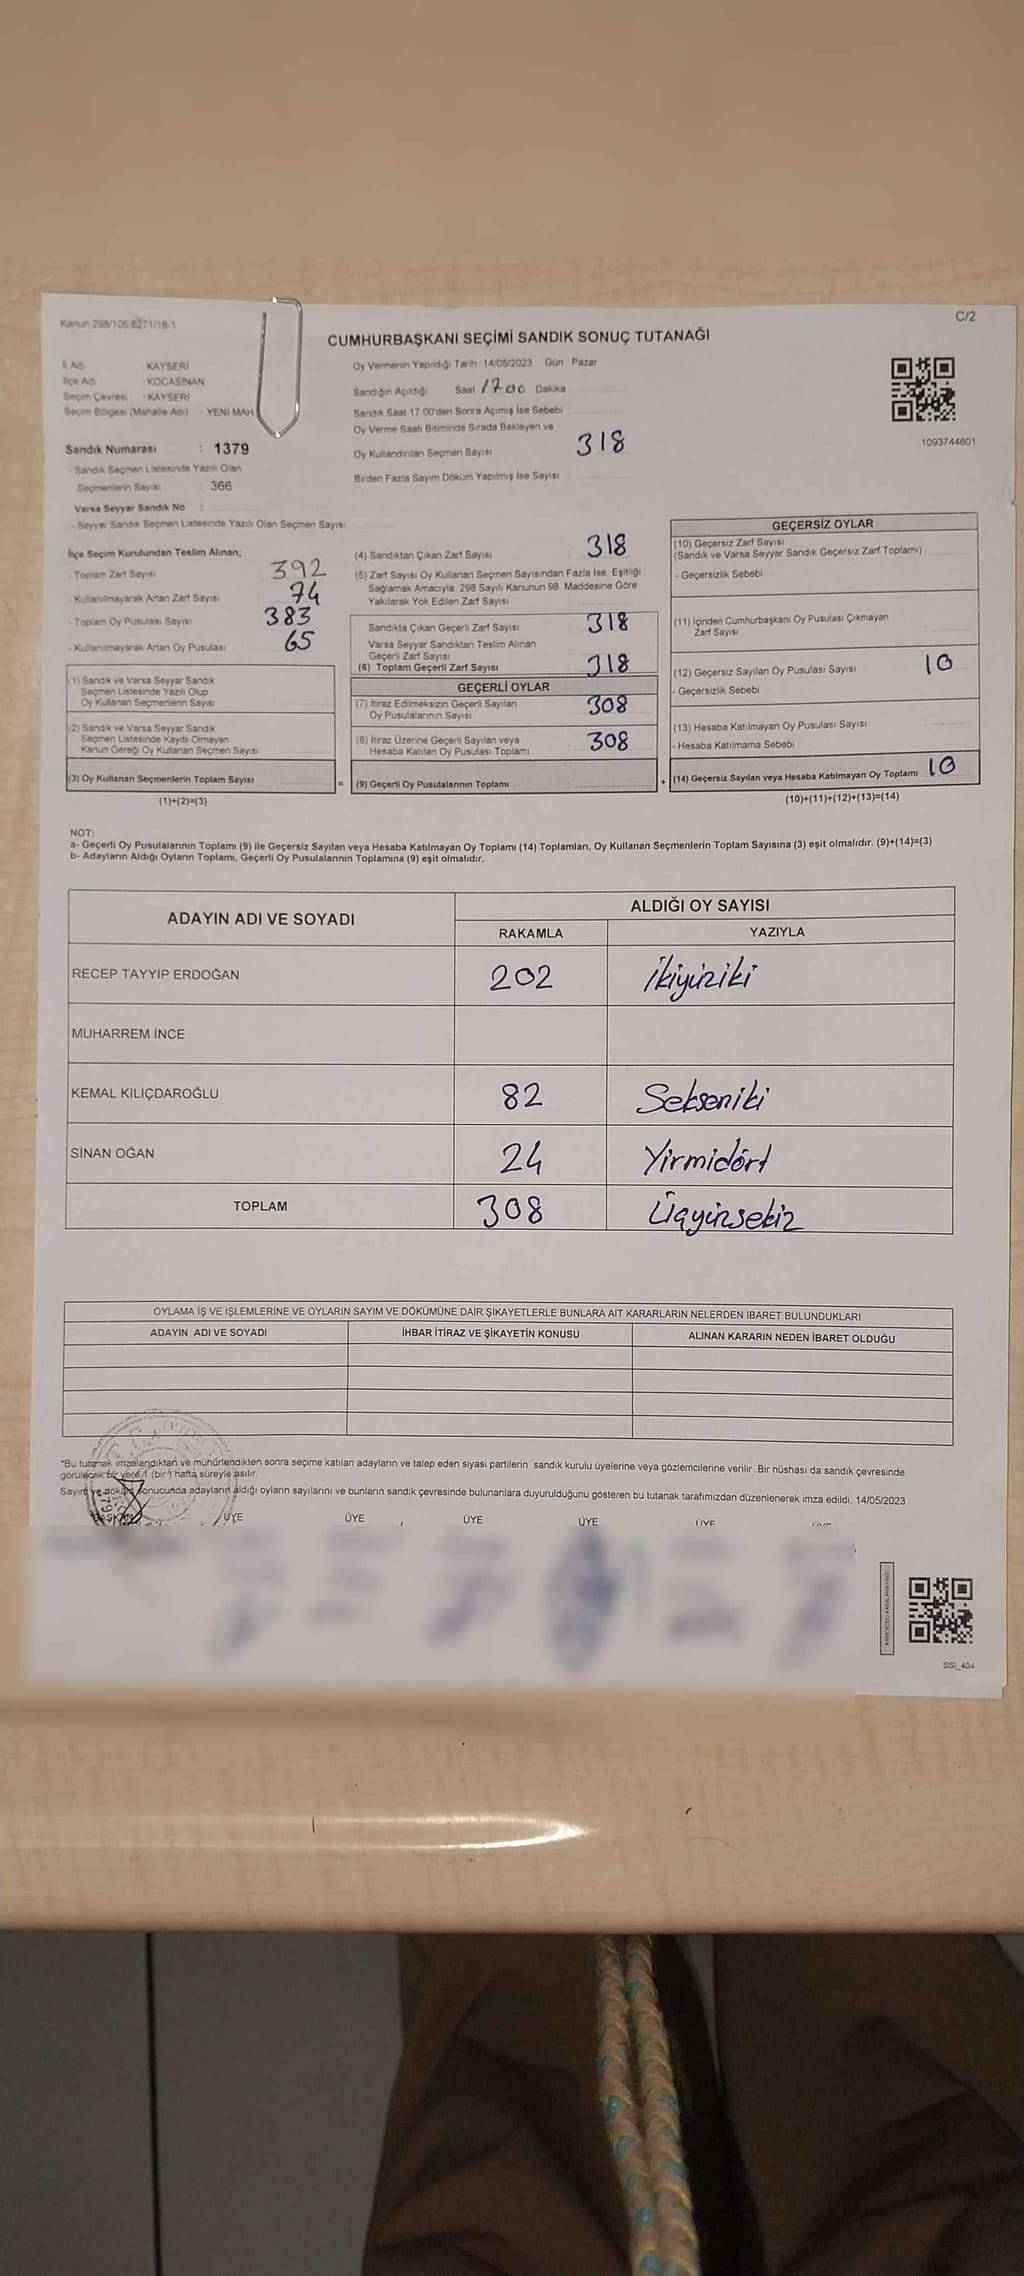 Kanun:298/105 6271/18-1
C/2
CUMHURBAŞKANI SEÇİMİ SANDIK SONUÇ TUTANAĞI
İl Adı KAYSERİ
İlçe Adı KOCASİNAN
Seçim Çevresi : KAYSERİ
Seçim Bölgesi (Mahalle Adı) YENİ MAH.
Sandık Numarası : 1379
- Sandık Seçmen Listesinde Yazılı Olan
Seçmenlerin Sayısı : 366
Varsa Seyyar Sandık No :
- Seyyar Sandık Seçmen Listesinde Yazılı Olan Seçmen Sayısı
Oy Vermenin Yapıldığı Tarih 14/05/2023 Gün : Pazar
Sandığın Açıldığı Saat 1700 Dakika
Sandık Saat 17:00'den Sonra Açımış İse Sebebi
Oy Verme Saati Bitiminde Sırada Bekleyen ve
Oy Kullandırılan Seçmen Sayısı 318
Birden Fazla Sayım Döküm Yapılmış İse Sayısı
1093744801
İlçe Seçim Kurulundan Teslim Alınan;
- Toplam Zarf Sayısı 392
- Kullanılmayarak Artan Zarf Sayısı 74
- Toplam Oy Pusulası Sayısı 383
- Kullanılmayarak Artan Oy Pusulası 65
(1) Sandık ve Varsa Seyyar Sandık
Seçmen Listesinde Yazılı Olup
Oy Kullanan Seçmenlerin Sayısı
(2) Sandık ve Varsa Seyyar Sandık
Seçmen Listesinde Kayıtlı Olmayan
Kanun Gereği Oy Kullanan Seçmen Sayısı
(3) Oy Kullanan Seçmenlerin Toplam Sayısı
(1)+(2)=(3)
(4) Sandıktan Çıkan Zarf Sayısı 318
(5) Zarf Sayısı Oy Kullanan Seçmen Sayısından Fazla İse, Eşitliği
Sağlamak Amacıyla, 298 Sayılı Kanunun 98. Maddesine Göre
Yakılarak Yok Edilen Zarf Sayısı
Sandıkta Çıkan Geçerli Zarf Sayısı 318
Varsa Seyyar Sandıktan Teslim Alınan
Geçerli Zarf Sayısı
(6) Toplam Geçerli Zarf Sayısı 318
GEÇERLİ OYLAR
(7) İtiraz Edilmeksizin Geçerli Sayılan
Oy Pusulalarının Sayısı 308
(8) İtiraz Üzerine Geçerli Sayılan veya
Hesaba Katılan Oy Pusulası Toplamı 308
= (9) Geçerli Oy Pusulalarının Toplamı +
GEÇERSİZ OYLAR
(10) Geçersiz Zarf Sayısı
(Sandık ve Varsa Seyyar Sandık Geçersiz Zarf Toplamı)
- Geçersizlik Sebebi
(11) İçinden Cumhurbaşkanı Oy Pusulası Çıkmayan
Zarf Sayısı
(12) Geçersiz Sayılan Oy Pusulası Sayısı 10
- Geçersizlik Sebebi
(13) Hesaba Katılmayan Oy Pusulası Sayısı
- Hesaba Katılmama Sebebi
(14) Geçersiz Sayılan veya Hesaba Katılmayan Oy Toplamı 10
(10)+(11)+(12)+(13)=(14)
NOT:
a- Geçerli Oy Pusulalarının Toplamı (9) ile Geçersiz Sayılan veya Hesaba Katılmayan Oy Toplamı (14) Toplamları, Oy Kullanan Seçmenlerin Toplam Sayısına (3) eşit olmalıdır. (9)+(14)=(3)
b- Adayların Aldığı Oyların Toplamı, Geçerli Oy Pusulalarının Toplamına (9) eşit olmalıdır.
ADAYIN ADI VE SOYADI ALDIĞI OY SAYISI
RAKAMLA YAZIYLA
RECEP TAYYİP ERDOĞAN 202 İkiyüziki
MUHARREM İNCE
KEMAL KILIÇDAROĞLU 82 Sekseniki
SİNAN OĞAN 24 Yirmidört
TOPLAM 308 Üçyüzsekiz
OYLAMA İŞ VE İŞLEMLERİNE VE OYLARIN SAYIM VE DÖKÜMÜNE DAİR ŞİKAYETLERLE BUNLARA AİT KARARLARIN NELERDEN İBARET BULUNDUKLARI
ADAYIN ADI VE SOYADI İHBAR İTİRAZ VE ŞİKAYETİN KONUSU ALINAN KARARIN NEDEN İBARET OLDUĞU
*Bu tutanak imzalandıktan ve mühürlendikten sonra seçime katılan adayların ve talep eden siyasi partilerin sandık kurulu üyelerine veya gözlemcilerine verilir. Bir nüshası da sandık çevresinde
görülecek bir yere 1 (bir) hafta süreyle asılır.
Sayım ve döküm sonucunda adayların aldığı oyların sayılarını ve bunların sandık çevresinde bulunanlara duyurulduğunu gösteren bu tutanak tarafımızdan düzenlenerek imza edildi. 14/05/2023
BAŞKAN ÜYE ÜYE ÜYE ÜYE ÜYE ÜYE
SSI_404